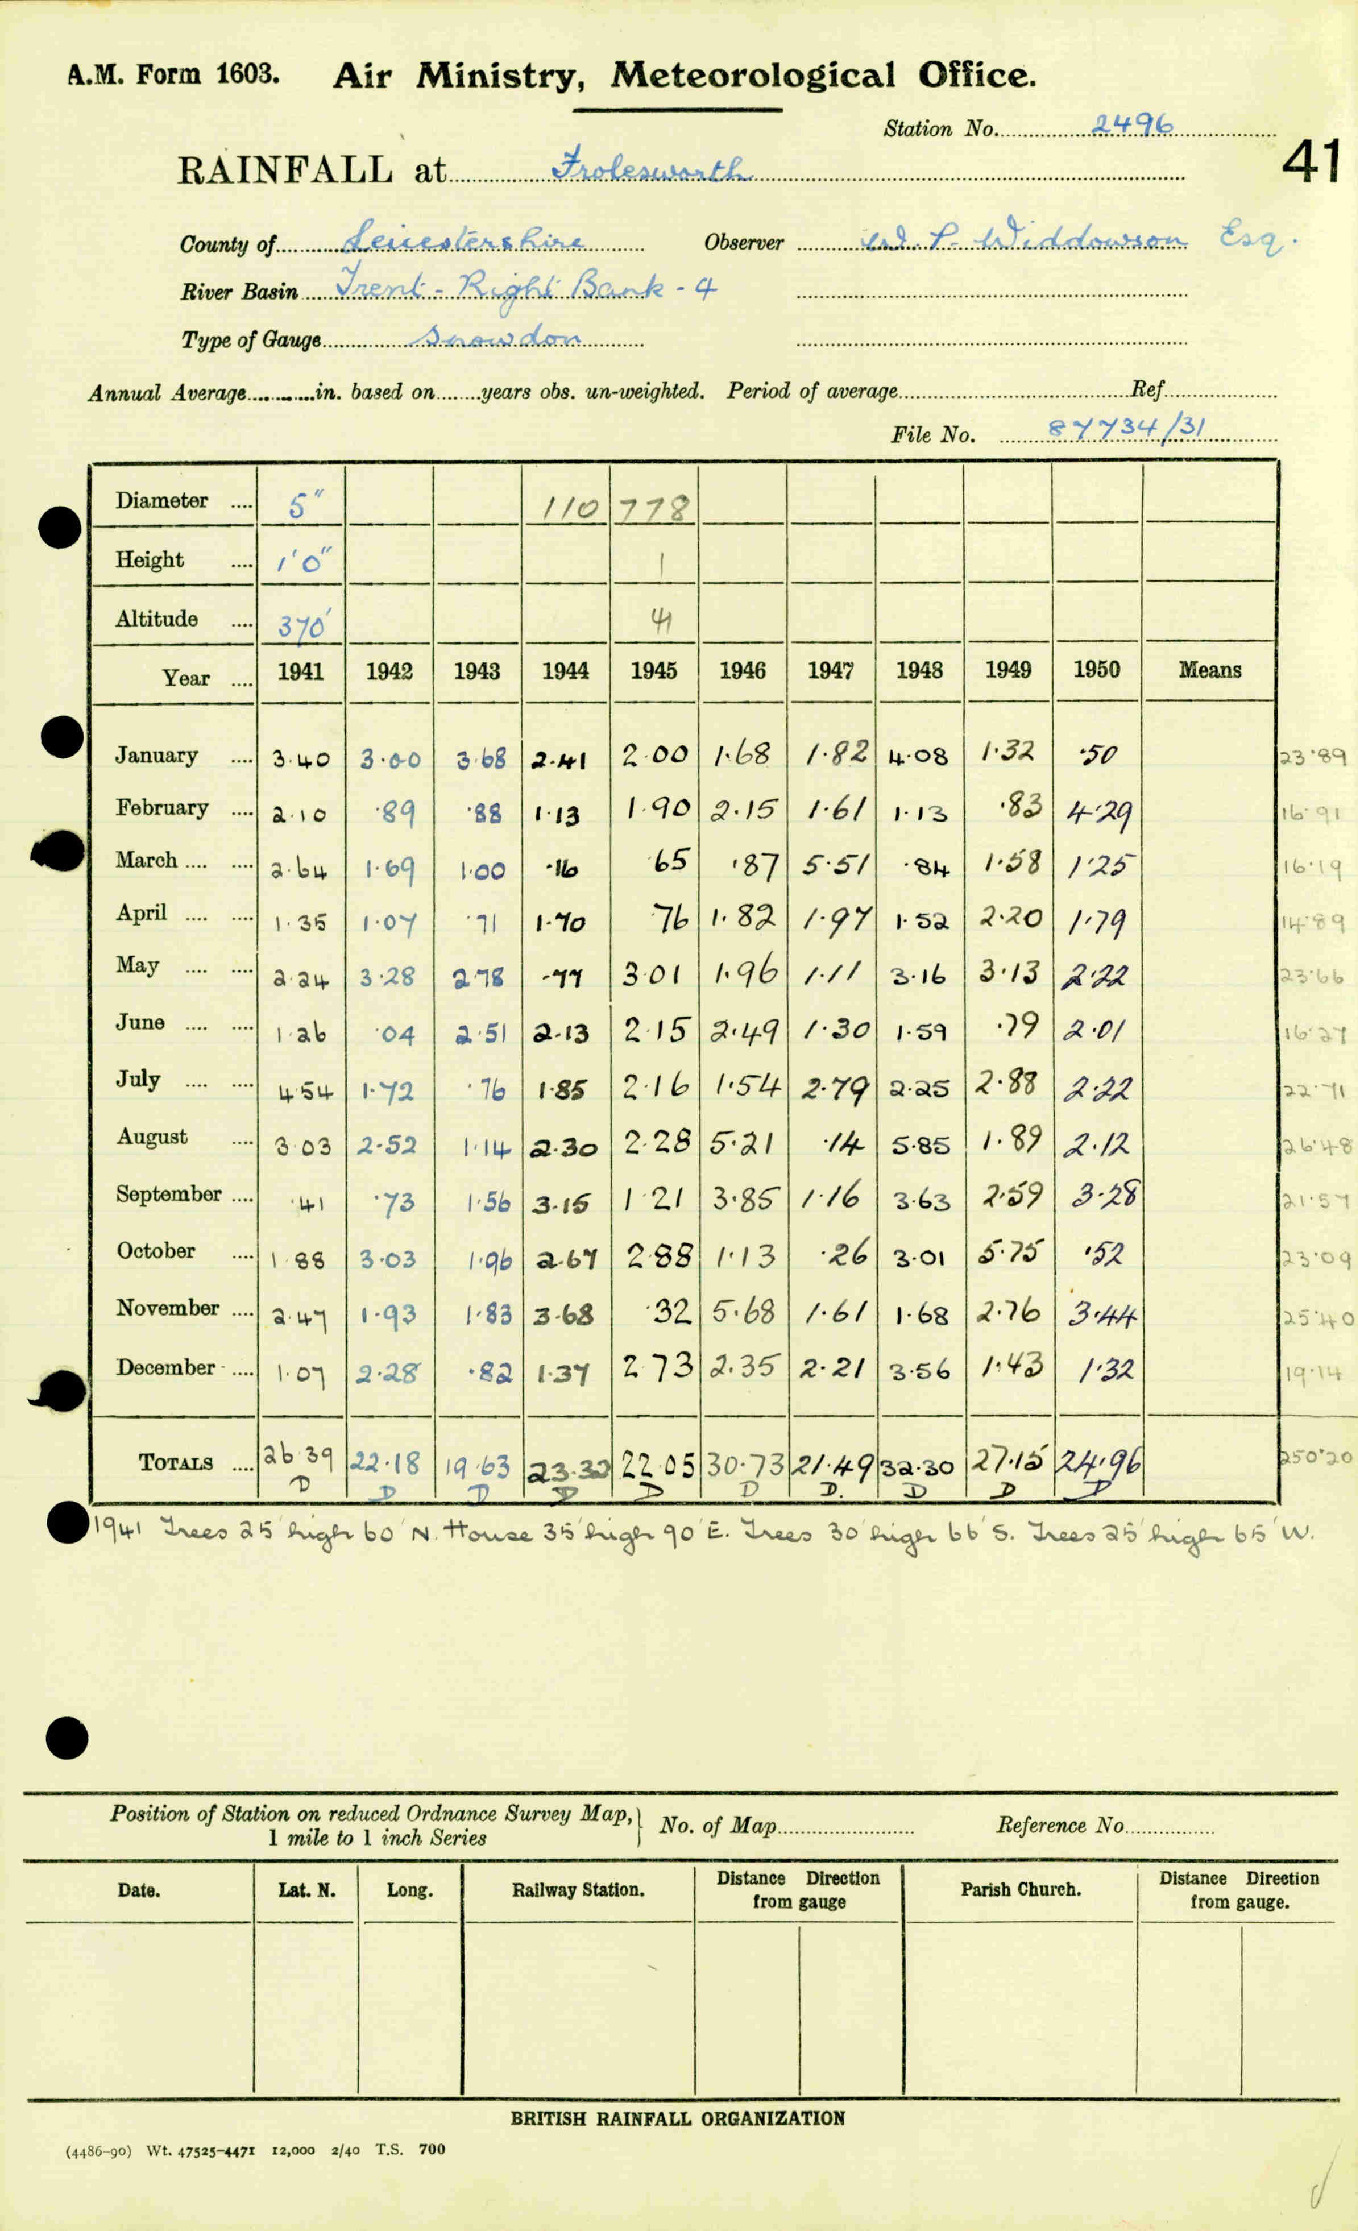 A.M. Form 1603. Air Ministry, Meteorological Office.
Station No. 2496
41
RAINFALL at Frolesworth
County of Leicestershire Observer W. P. Widdowson Esq.
River Basin Trent - Right Bank - 4
Type of Gauge Snowdon
Annual Average in. based on years obs. un-weighted. Period of average Ref.
File No. 87734/31
Diameter .... 5" 110 778
Height .... 1'0" 1
Altitude .... 370' 41
Year .... 1941 1942 1943 1944 1945 1946 1947 1948 1949 1950 Means
January .... 3.40 3.00 3.68 2.41 2.00 1.68 1.82 4.08 1.32 .50 23.89
February .... 2.10 .89 .88 1.13 1.90 2.15 1.61 1.13 .83 4.29 16.91
March .... .... 2.64 1.69 1.00 .16 65 .87 5.51 .84 1.58 1.25 16.19
April .... .... 1.35 1.07 .71 1.70 76 1.82 1.97 1.52 2.20 1.79 14.89
May .... .... 2.24 3.28 2.78 .77 3.01 1.96 1.11 3.16 3.13 2.22 23.66
June .... .... 1.26 .04 2.51 2.13 2.15 2.49 1.30 1.59 .79 2.01 16.27
July .... .... 4.54 1.72 .76 1.85 2.16 1.54 2.79 2.25 2.88 2.22 22.71
August .... 3.03 2.52 1.14 2.30 2.28 5.21 .14 5.85 1.89 2.12 26.48
September .... .41 .73 1.56 3.15 1.21 3.85 1.16 3.63 2.59 3.28 21.57
October .... 1.88 3.03 1.96 2.67 2.88 1.13 .26 3.01 5.75 .52 23.09
November .... 2.47 1.93 1.83 3.68 .32 5.68 1.61 1.68 2.76 3.44 25.40
December .... 1.07 2.28 .82 1.37 2.73 2.35 2.21 3.56 1.43 1.32 19.14
TOTALS .... 26.39 22.18 19.63 23.32 22.05 30.73 21.49 32.30 27.15 24.96 250.20
D D D D D D D. D D D
1941 Trees 25' high 60' N. House 35' high 90' E. Trees 30' high 66' S. Trees 25' high 65' W.
Position of Station on reduced Ordnance Survey Map, 1 mile to 1 inch Series } No. of Map Reference No.
Date. Lat. N. Long. Railway Station. Distance Direction from gauge Parish Church. Distance Direction from gauge.
BRITISH RAINFALL ORGANIZATION
(4486-90) Wt. 47525-4471 12,000 2/40 T.S. 700